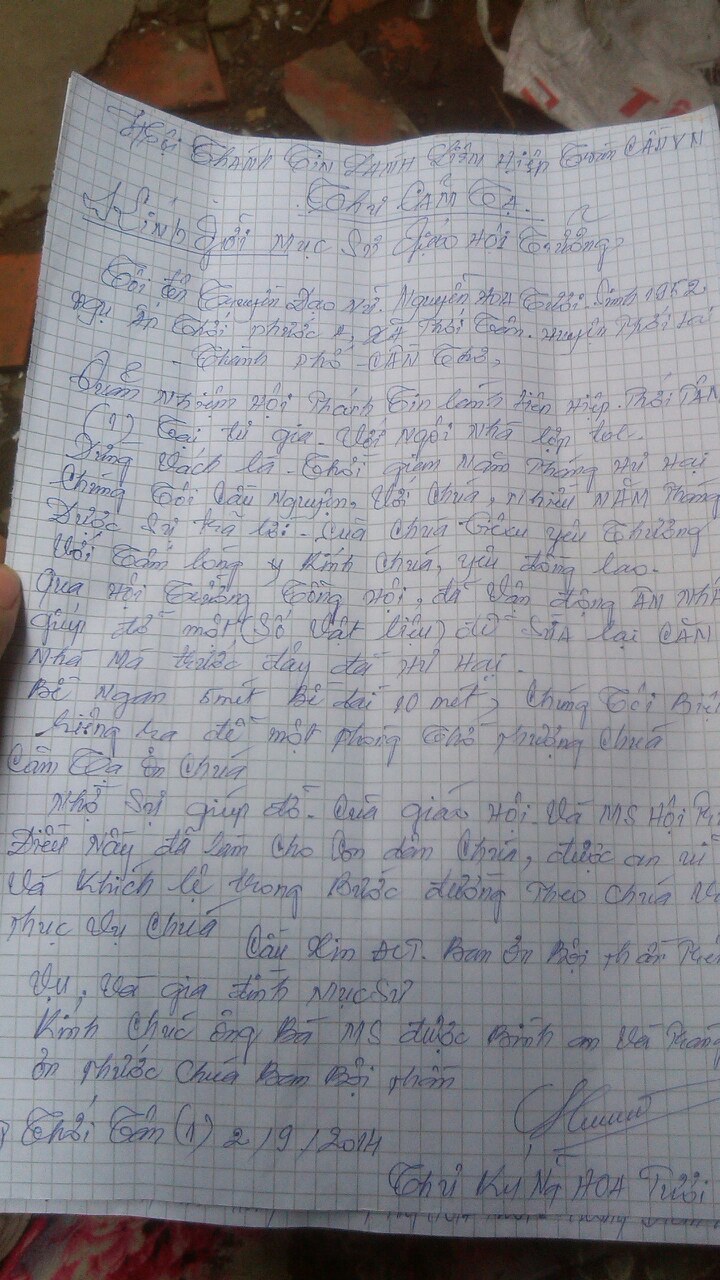 Hội Thánh Tin Lành Liên Hiệp Toàn Cầu VN
Thư Cảm Tạ
Kính Gởi Mục Sư Giáo Hội Trưởng
Tôi tên Truyền Đạo Nữ. Nguyễn Hoa Tười. Sinh 1952
Ngụ Ấp Thới Phước 1, Xã Thới Tân. Huyện Thới Lai
Thành phố CẦN Thơ,
Nhiệm Hội Thánh Tin lành Liên Hiệp. Thới TÂN
(1) Tại tư gia. Với Ngôi Nhà lợp lá.
Dừng Vách lá. Thời gian Năm Tháng Hư Hại
Chúng Tôi Cầu Nguyện, Với Chúa, Nhiều NĂM Tháng
Được Sự trả lời. Của Chúa Giêxu yêu Thương
Với Tấm lòng Kính Chúa, yêu đồng lao.
Qua Hội Trưởng Tổng Hội, đã Vận động ÂN NHÂ
giúp đỡ một (Số Vật liệu) để SửA lại CĂN
Nhà Mà trước đây đã Hư Hại.
Bề Ngan 5 mét Bề dài 10 mét, Chúng Tôi Biệ
riêng ra để một phòng Thờ phượng Chúa
Cảm Tạ ơn Chúa
Nhờ Sự giúp đỡ. Của giáo Hội. Và MS Hội Tr
Điều Nầy đã làm cho Con dân Chúa, được an ủi
Và Khích lệ trong Bước đường Theo Chúa V
Phục Vụ Chúa
Cầu Xin ĐCT. Ban Ơn Bội phần
Vụ, Và gia đình Mục Sư
Kính Chúc ông Bà MS được Bình an Và Tràn
ơn phước Chúa Ban Bội phần
Thới Tân (1) 2/9/2014
Thư Ký Ng Hoa Tười